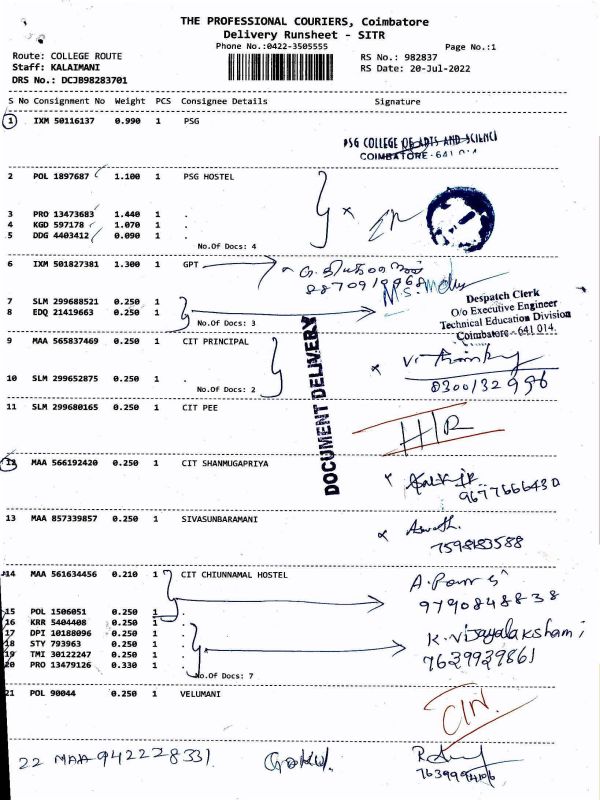 THE PROFESSIONAL COURIERS, Coimbatore
Delivery Runsheet - SITR
Phone No.:0422-3505555
Page No.:1
Route: COLLEGE ROUTE
Staff: KALAIMANI
DRS No.: DCJB98283701
RS No.: 982837
RS Date: 20-Jul-2022
S No Consignment No Weight PCS Consignee Details Signature
1 IXM 50116137 0.990 1 PSG
PSG COLLEGE OF ARTS AND SCIENCE
COIMBATORE - 641 014
2 POL 1897687 1.100 1 PSG HOSTEL
3 PRO 13473683 1.440 1 .
4 KGD 597178 1.070 1 .
5 DDG 4403412 0.090 1 .
No.Of Docs: 4
6 IXM 501827381 1.300 1 GPT
7 SLM 299688521 0.250 1 .
8 EDQ 21419663 0.250 1 .
No.Of Docs: 3
Despatch Clerk
O/o Executive Engineer
Technical Education Division
Coimbatore - 641 014.
DOCUMENT DELIVERY
9 MAA 565837469 0.250 1 CIT PRINCIPAL
10 SLM 299652875 0.250 1 .
No.Of Docs: 2
11 SLM 299680165 0.250 1 CIT PEE
12 MAA 566192420 0.250 1 CIT SHANMUGAPRIYA
13 MAA 857339857 0.250 1 SIVASUNBARAMANI
7598183588
14 MAA 561634456 0.210 1 CIT CHIUNNAMAL HOSTEL
9790848838
15 POL 1506051 0.250 1 .
16 KRR 5404408 0.250 1 .
17 DPI 10188096 0.250 1 .
18 STY 793963 0.250 1 .
19 TMI 30122247 0.250 1 .
20 PRO 13479126 0.330 1 .
No.Of Docs: 7
K. Vijayalakshami
7639939861
21 POL 90044 0.250 1 VELUMANI
22 MAA 942228331 Gokul.